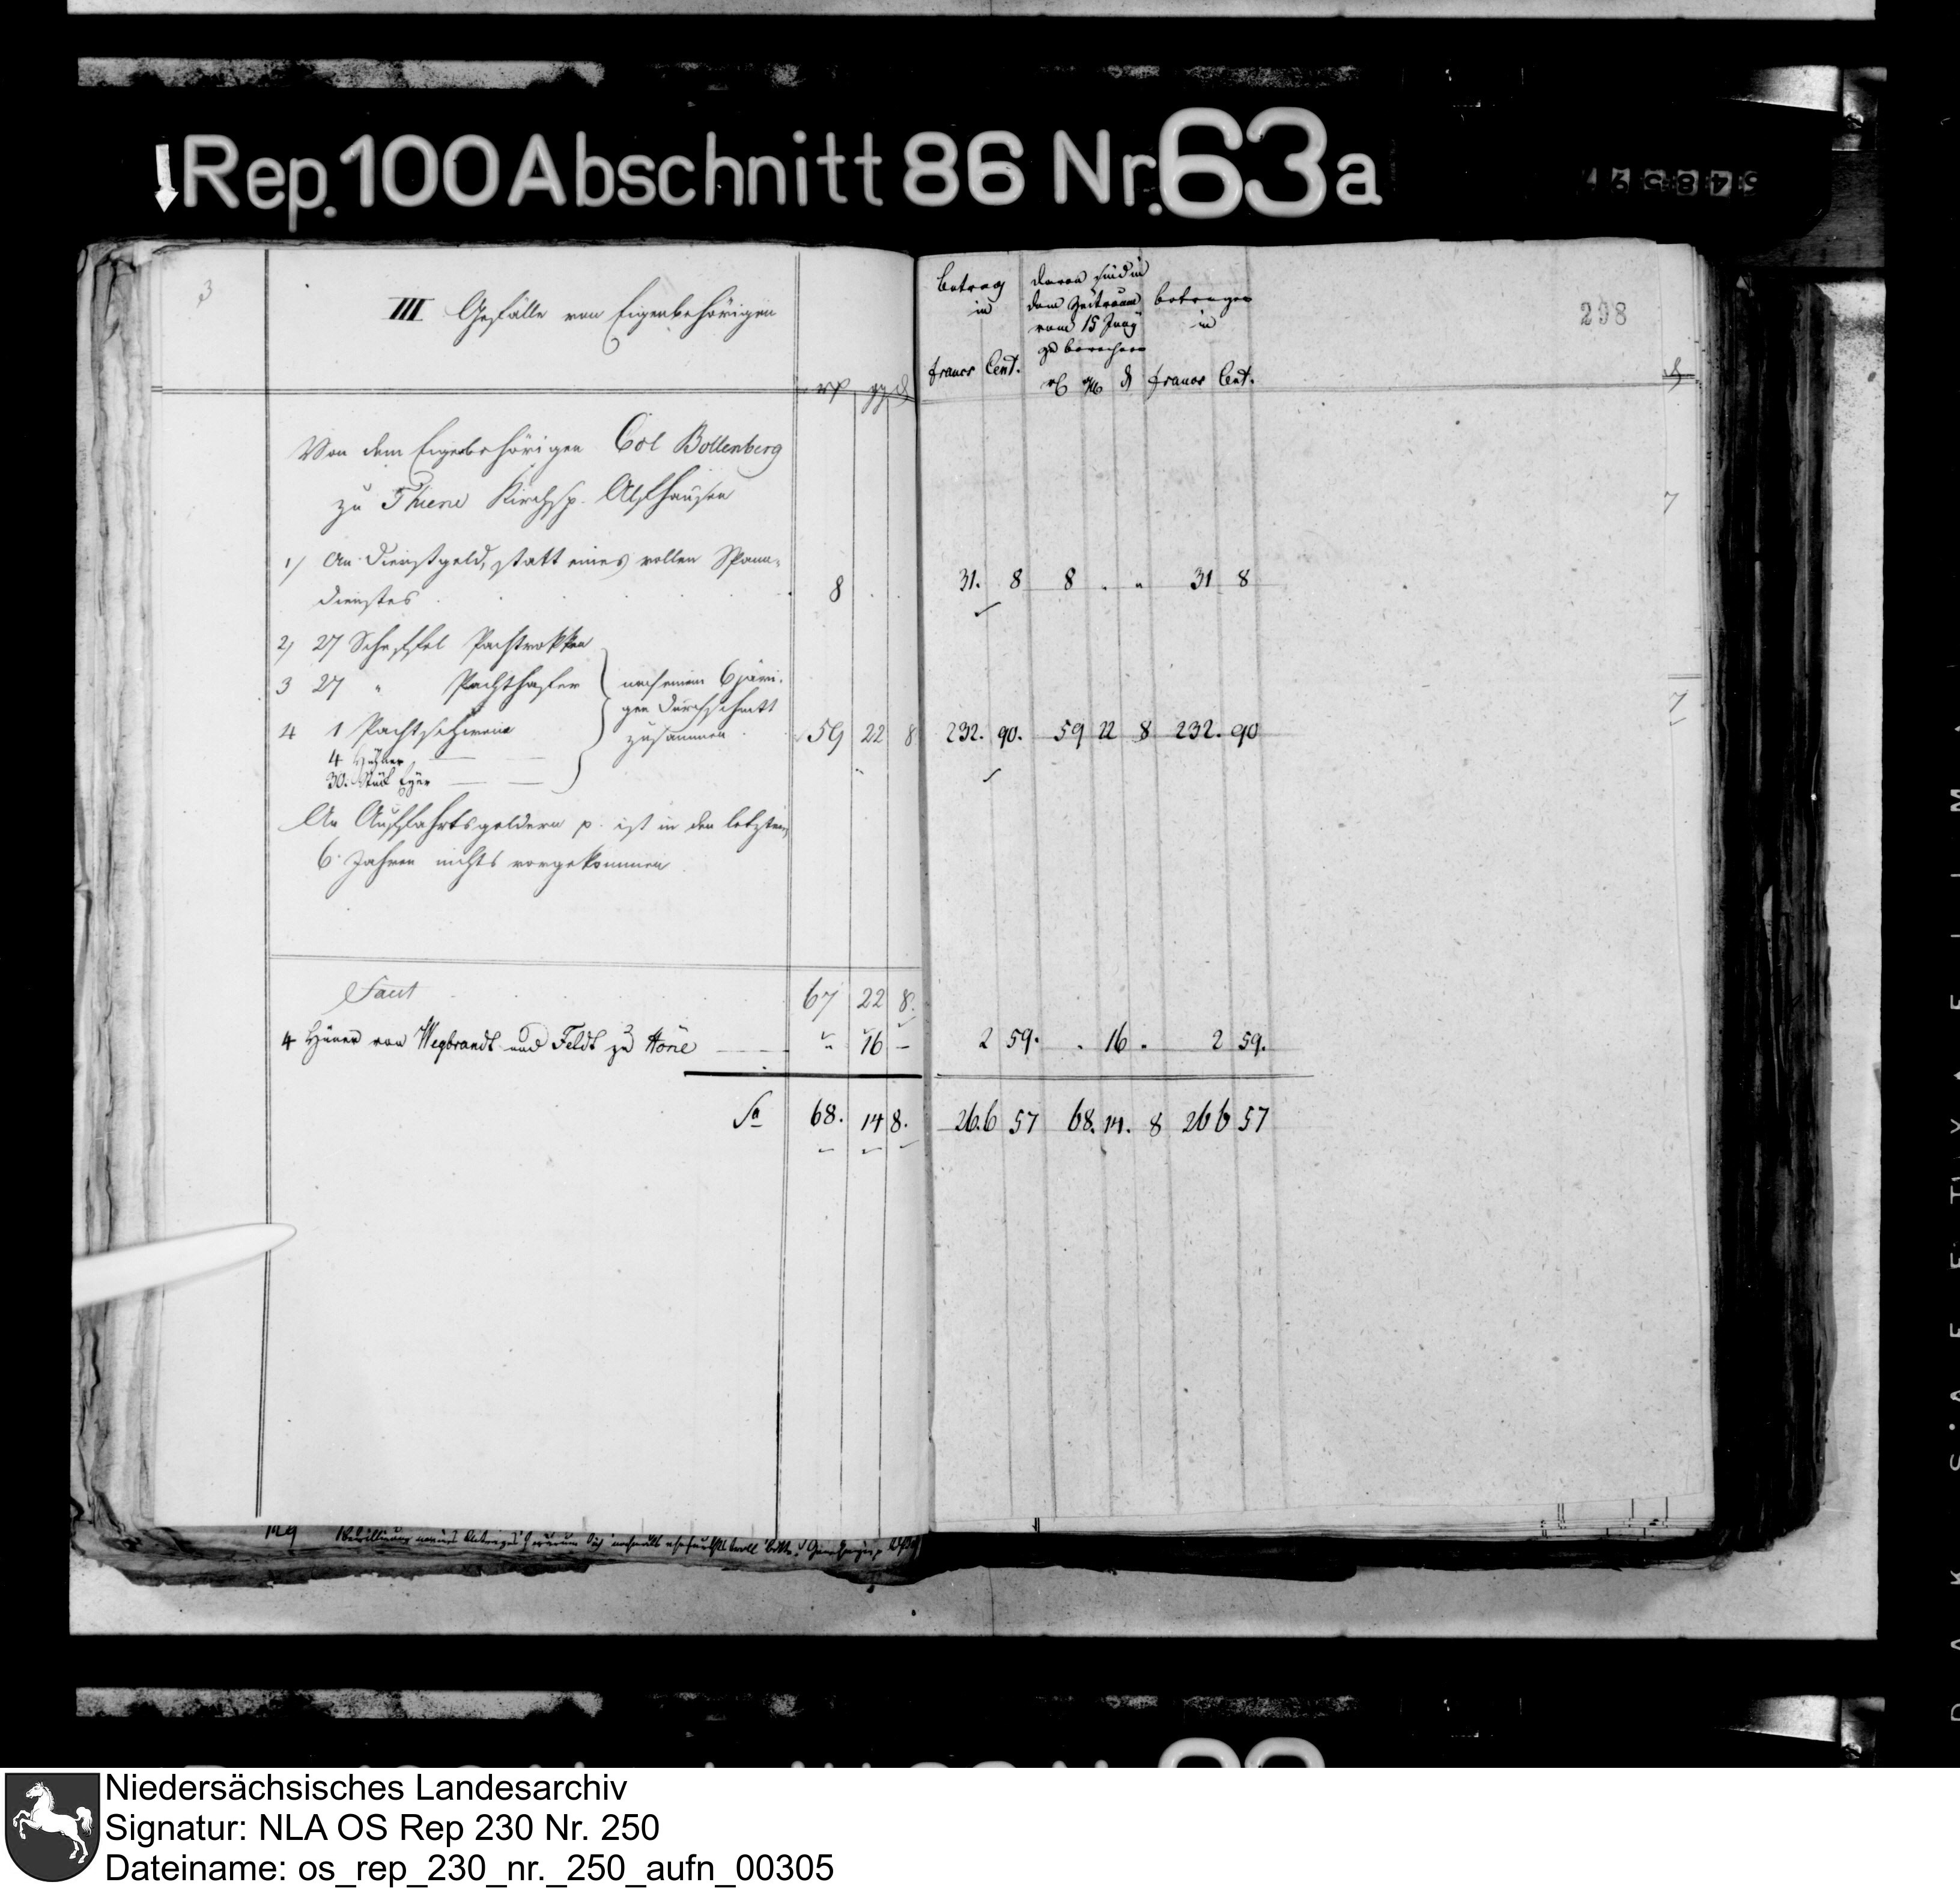 Rep. 100 Abschnitt 86 Nr. 63a
3
III Gefälle von Eigenbehörigen
rt gg d
Von dem Eigenbehörigen Col Bollenberg
zu Thiene Kirchsp. Alfhausen
1) An Dienstgeld, statt eines vollen Spann-
dienstes . . . 8 . .
2) 27 Scheffel Pachtrokken
3 27 " Pachthafer
4 1 Pachtschwein
4 Hüner
30. Stück Eyer
nach einem 6järi-
gen Durchschnitt
zusammen . 59 22 8
An Auffahrtsgeldern p. ist in den letzten
6 Jahren nichts vorgekommen
Facit 67 22 8.
4 Hüner von Wegbrandt und Feldt zu Höne " 16 -
Sa 68. 14 8.
298
betrag
in
francs Cent.
davon sind in
dem Zeitraum
vom 15 Juny
zu berechnen
betragen
in
francs Cent.
31. 8 8 . " 31 8
232. 90. 59 22 8 232. 90
2 59. . 16 . 2 59.
266 57 68. 14. 8 266 57
7
7
Niedersächsisches Landesarchiv
Signatur: NLA OS Rep 230 Nr. 250
Dateiname: os_rep_230_nr._250_aufn_00305